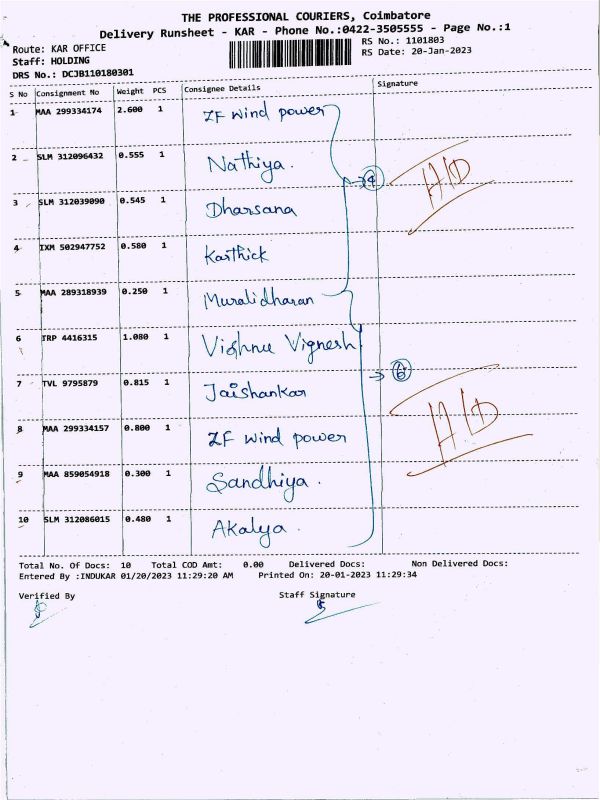 THE PROFESSIONAL COURIERS, Coimbatore
Delivery Runsheet - KAR - Phone No.:0422-3505555 - Page No.:1
Route: KAR OFFICE
RS No.: 1101803
Staff: HOLDING
RS Date: 20-Jan-2023
DRS No.: DCJB110180301
S No Consignment No Weight PCS Consignee Details Signature
1 MAA 299334174 2.600 1 ZF wind power
2 SLM 312096432 0.555 1 Nathiya.
3 SLM 312039090 0.545 1 Dharsana
4 IXM 502947752 0.580 1 Karthick
5 MAA 289318939 0.250 1 Muralidharan
→ 4
H/D
6 TRP 4416315 1.080 1 Vishnu Vignesh
7 TVL 9795879 0.815 1 Jaishankar
8 MAA 299334157 0.800 1 ZF wind power
9 MAA 859054918 0.300 1 Sandhiya.
10 SLM 312086015 0.480 1 Akalya.
→ 6
H/D
Total No. Of Docs: 10 Total COD Amt: 0.00 Delivered Docs: Non Delivered Docs:
Entered By :INDUKAR 01/20/2023 11:29:20 AM Printed On: 20-01-2023 11:29:34
Verified By Staff Signature